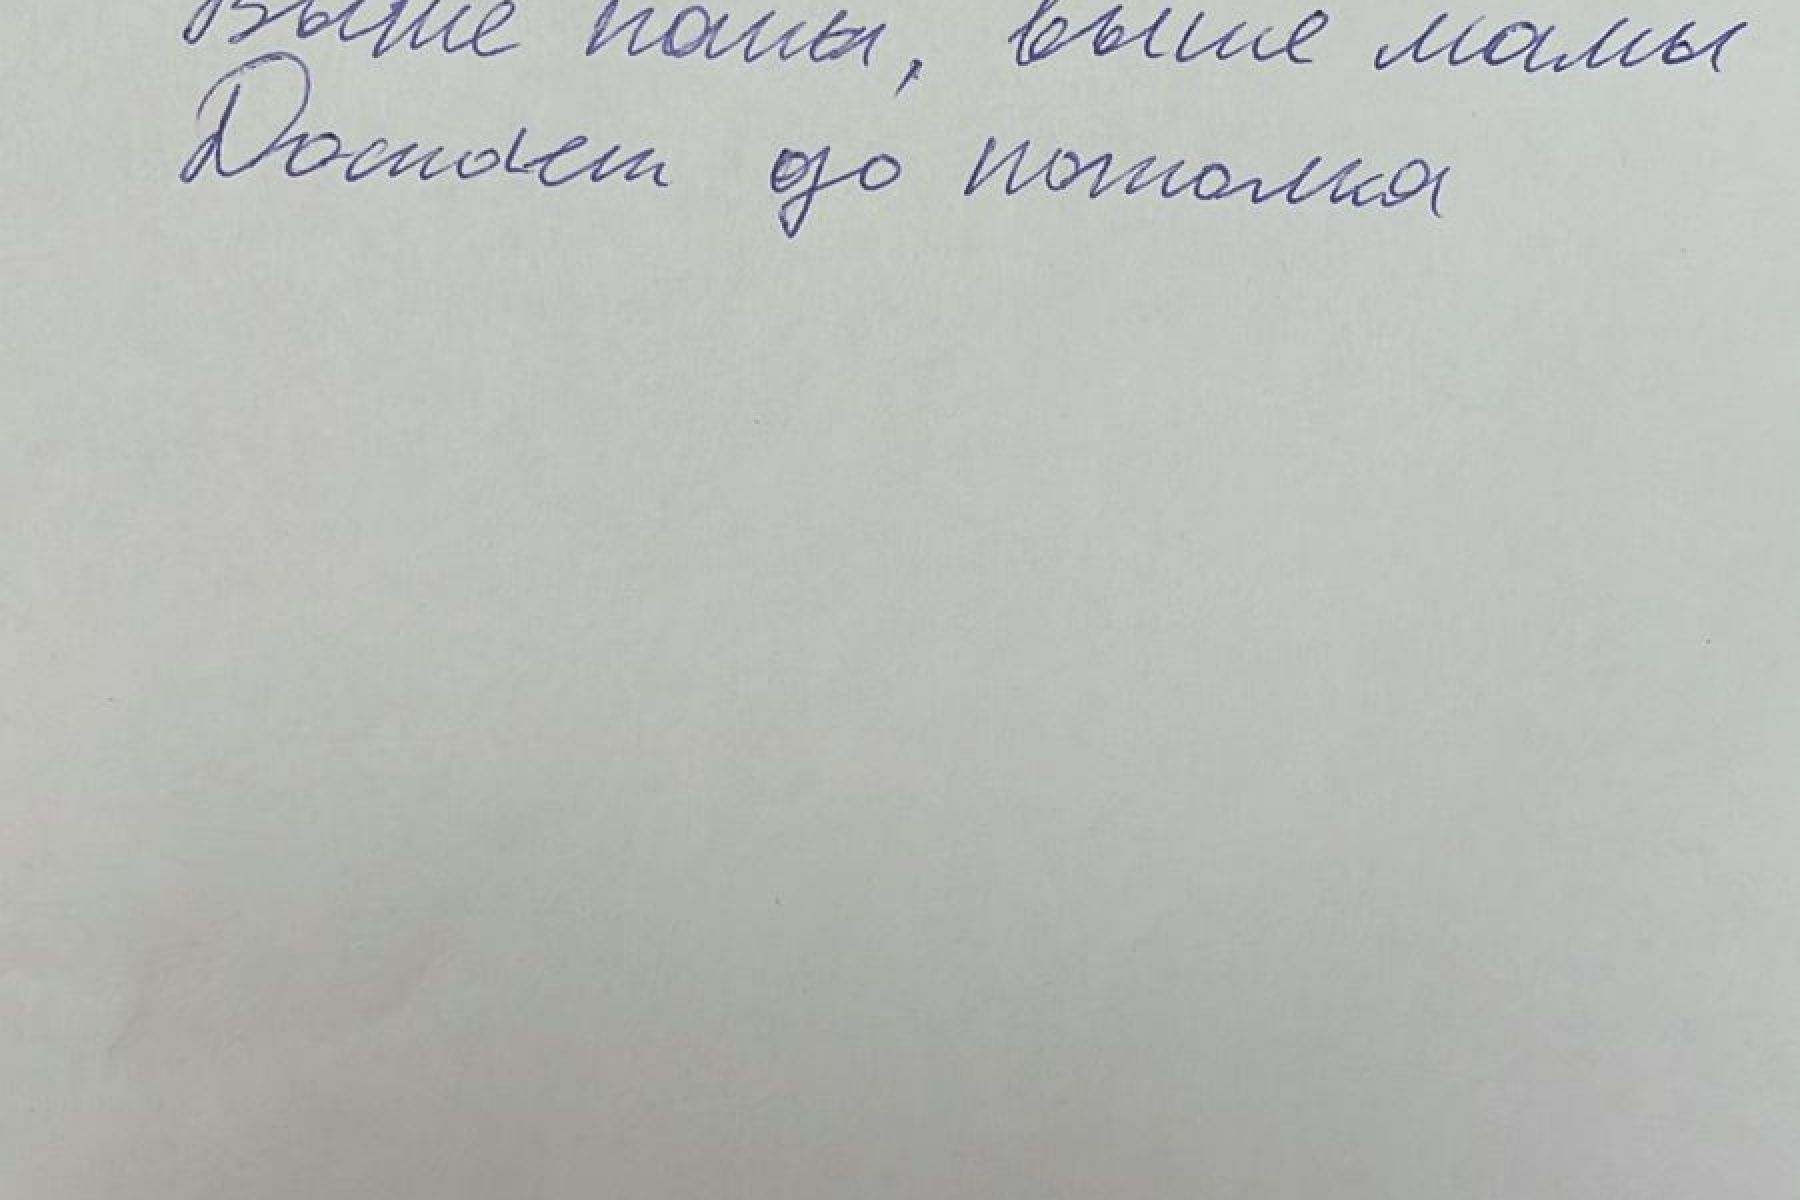 Выше папы, выше мамы
Достает до потолка